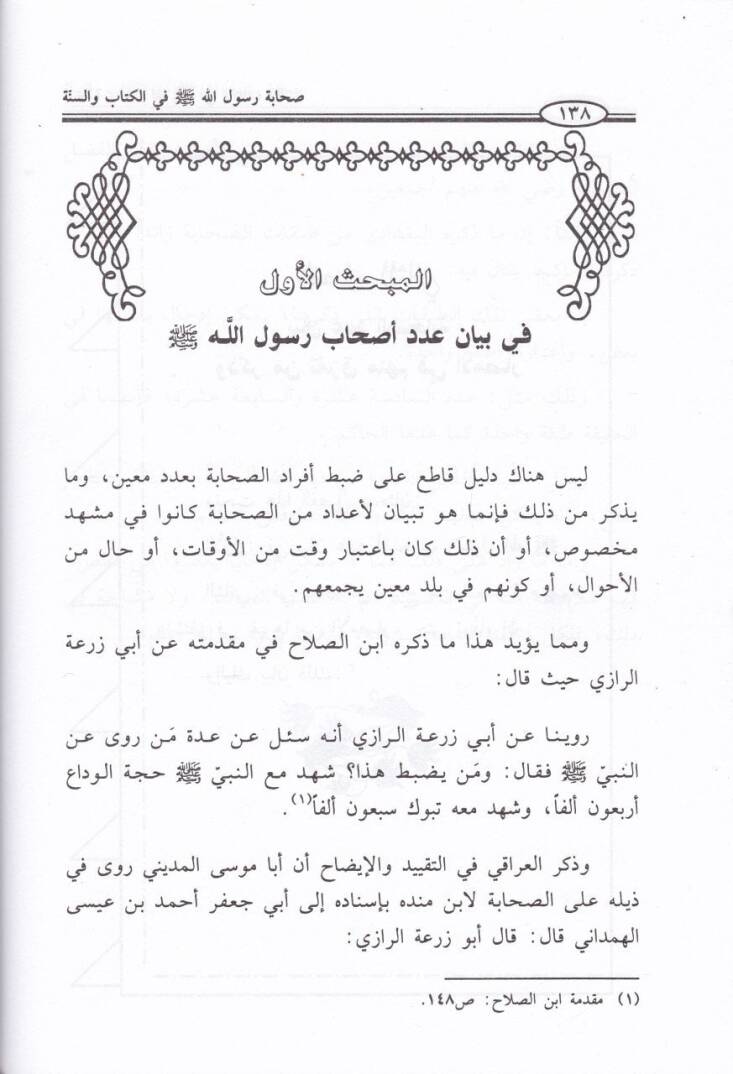 صحابة رسول الله ﷺ في الكتاب والسنّة
١٣٨
المبحث الأول
في بيان عدد أصحاب رسول اللَّه ﷺ
ليس هناك دليل قاطع على ضبط أفراد الصحابة بعدد معين، وما
يذكر من ذلك فإنما هو تبيان لأعداد من الصحابة كانوا في مشهد
مخصوص، أو أن ذلك كان باعتبار وقت من الأوقات، أو حال من
الأحوال، أو كونهم في بلد معين يجمعهم.
ومما يؤيد هذا ما ذكره ابن الصلاح في مقدمته عن أبي زرعة
الرازي حيث قال:
روينا عن أبي زرعة الرازي أنه سئل عن عدة مَن روى عن
النبيّ ﷺ فقال: ومَن يضبط هذا؟ شهد مع النبيّ ﷺ حجة الوداع
أربعون ألفاً، وشهد معه تبوك سبعون ألفاً(١).
وذكر العراقي في التقييد والإيضاح أن أبا موسى المديني روى في
ذيله على الصحابة لابن منده بإسناده إلى أبي جعفر أحمد بن عيسى
الهمداني قال: قال أبو زرعة الرازي:
(١) مقدمة ابن الصلاح: ص١٤٨.